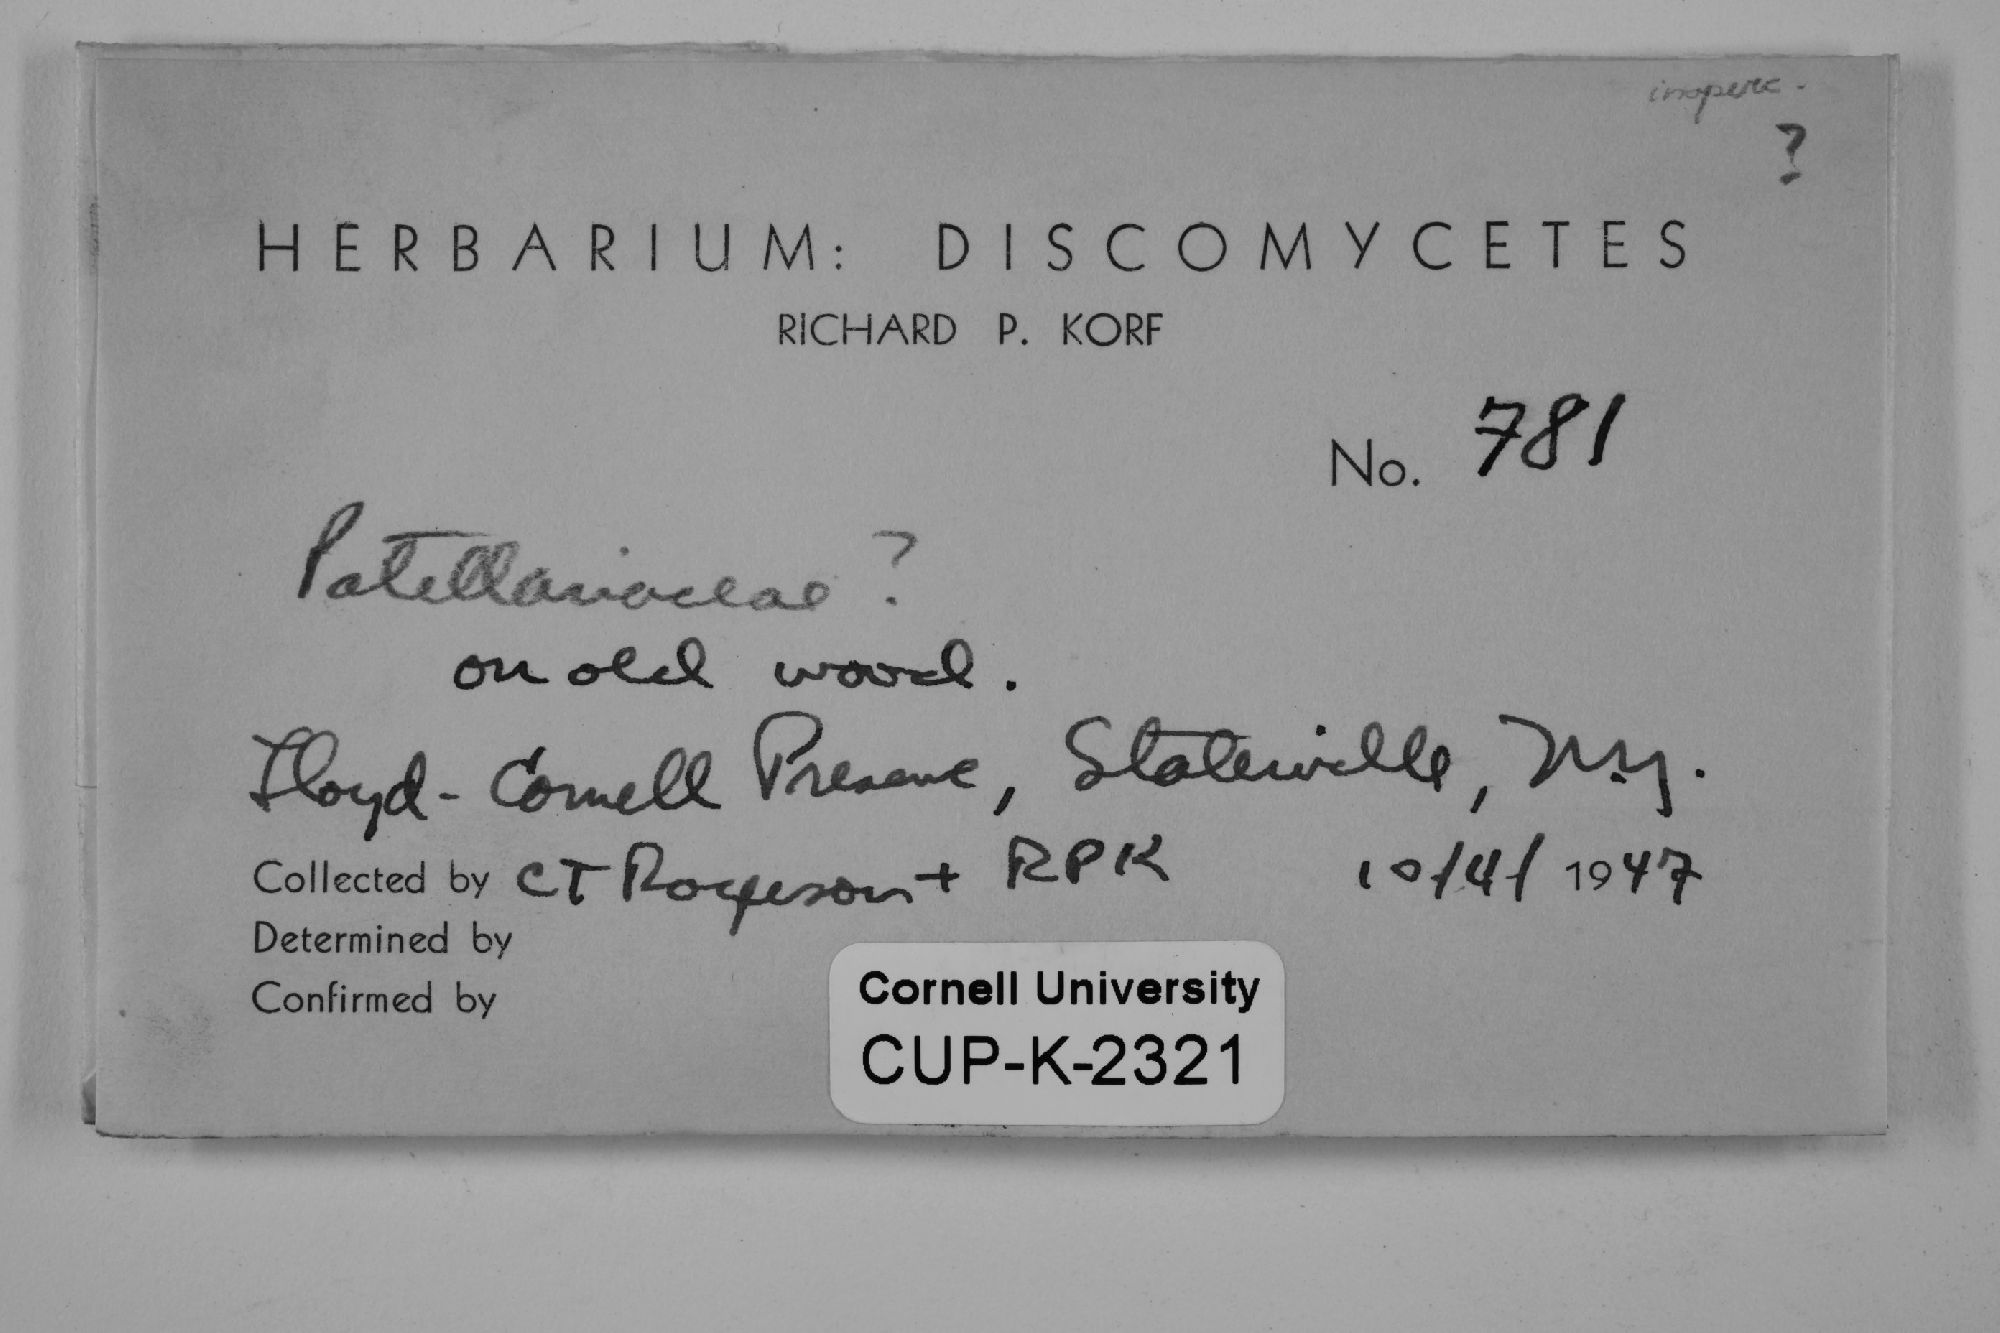 inoperc. ?
HERBARIUM: DISCOMYCETES
RICHARD P. KORF
No. 781
Patellariaceae ?
on old wood.
Lloyd-Cornell Preserve, Slaterville, N.Y.
Collected by CT Rogerson + RPK 10/4/1947
Determined by
Confirmed by
Cornell University
CUP-K-2321